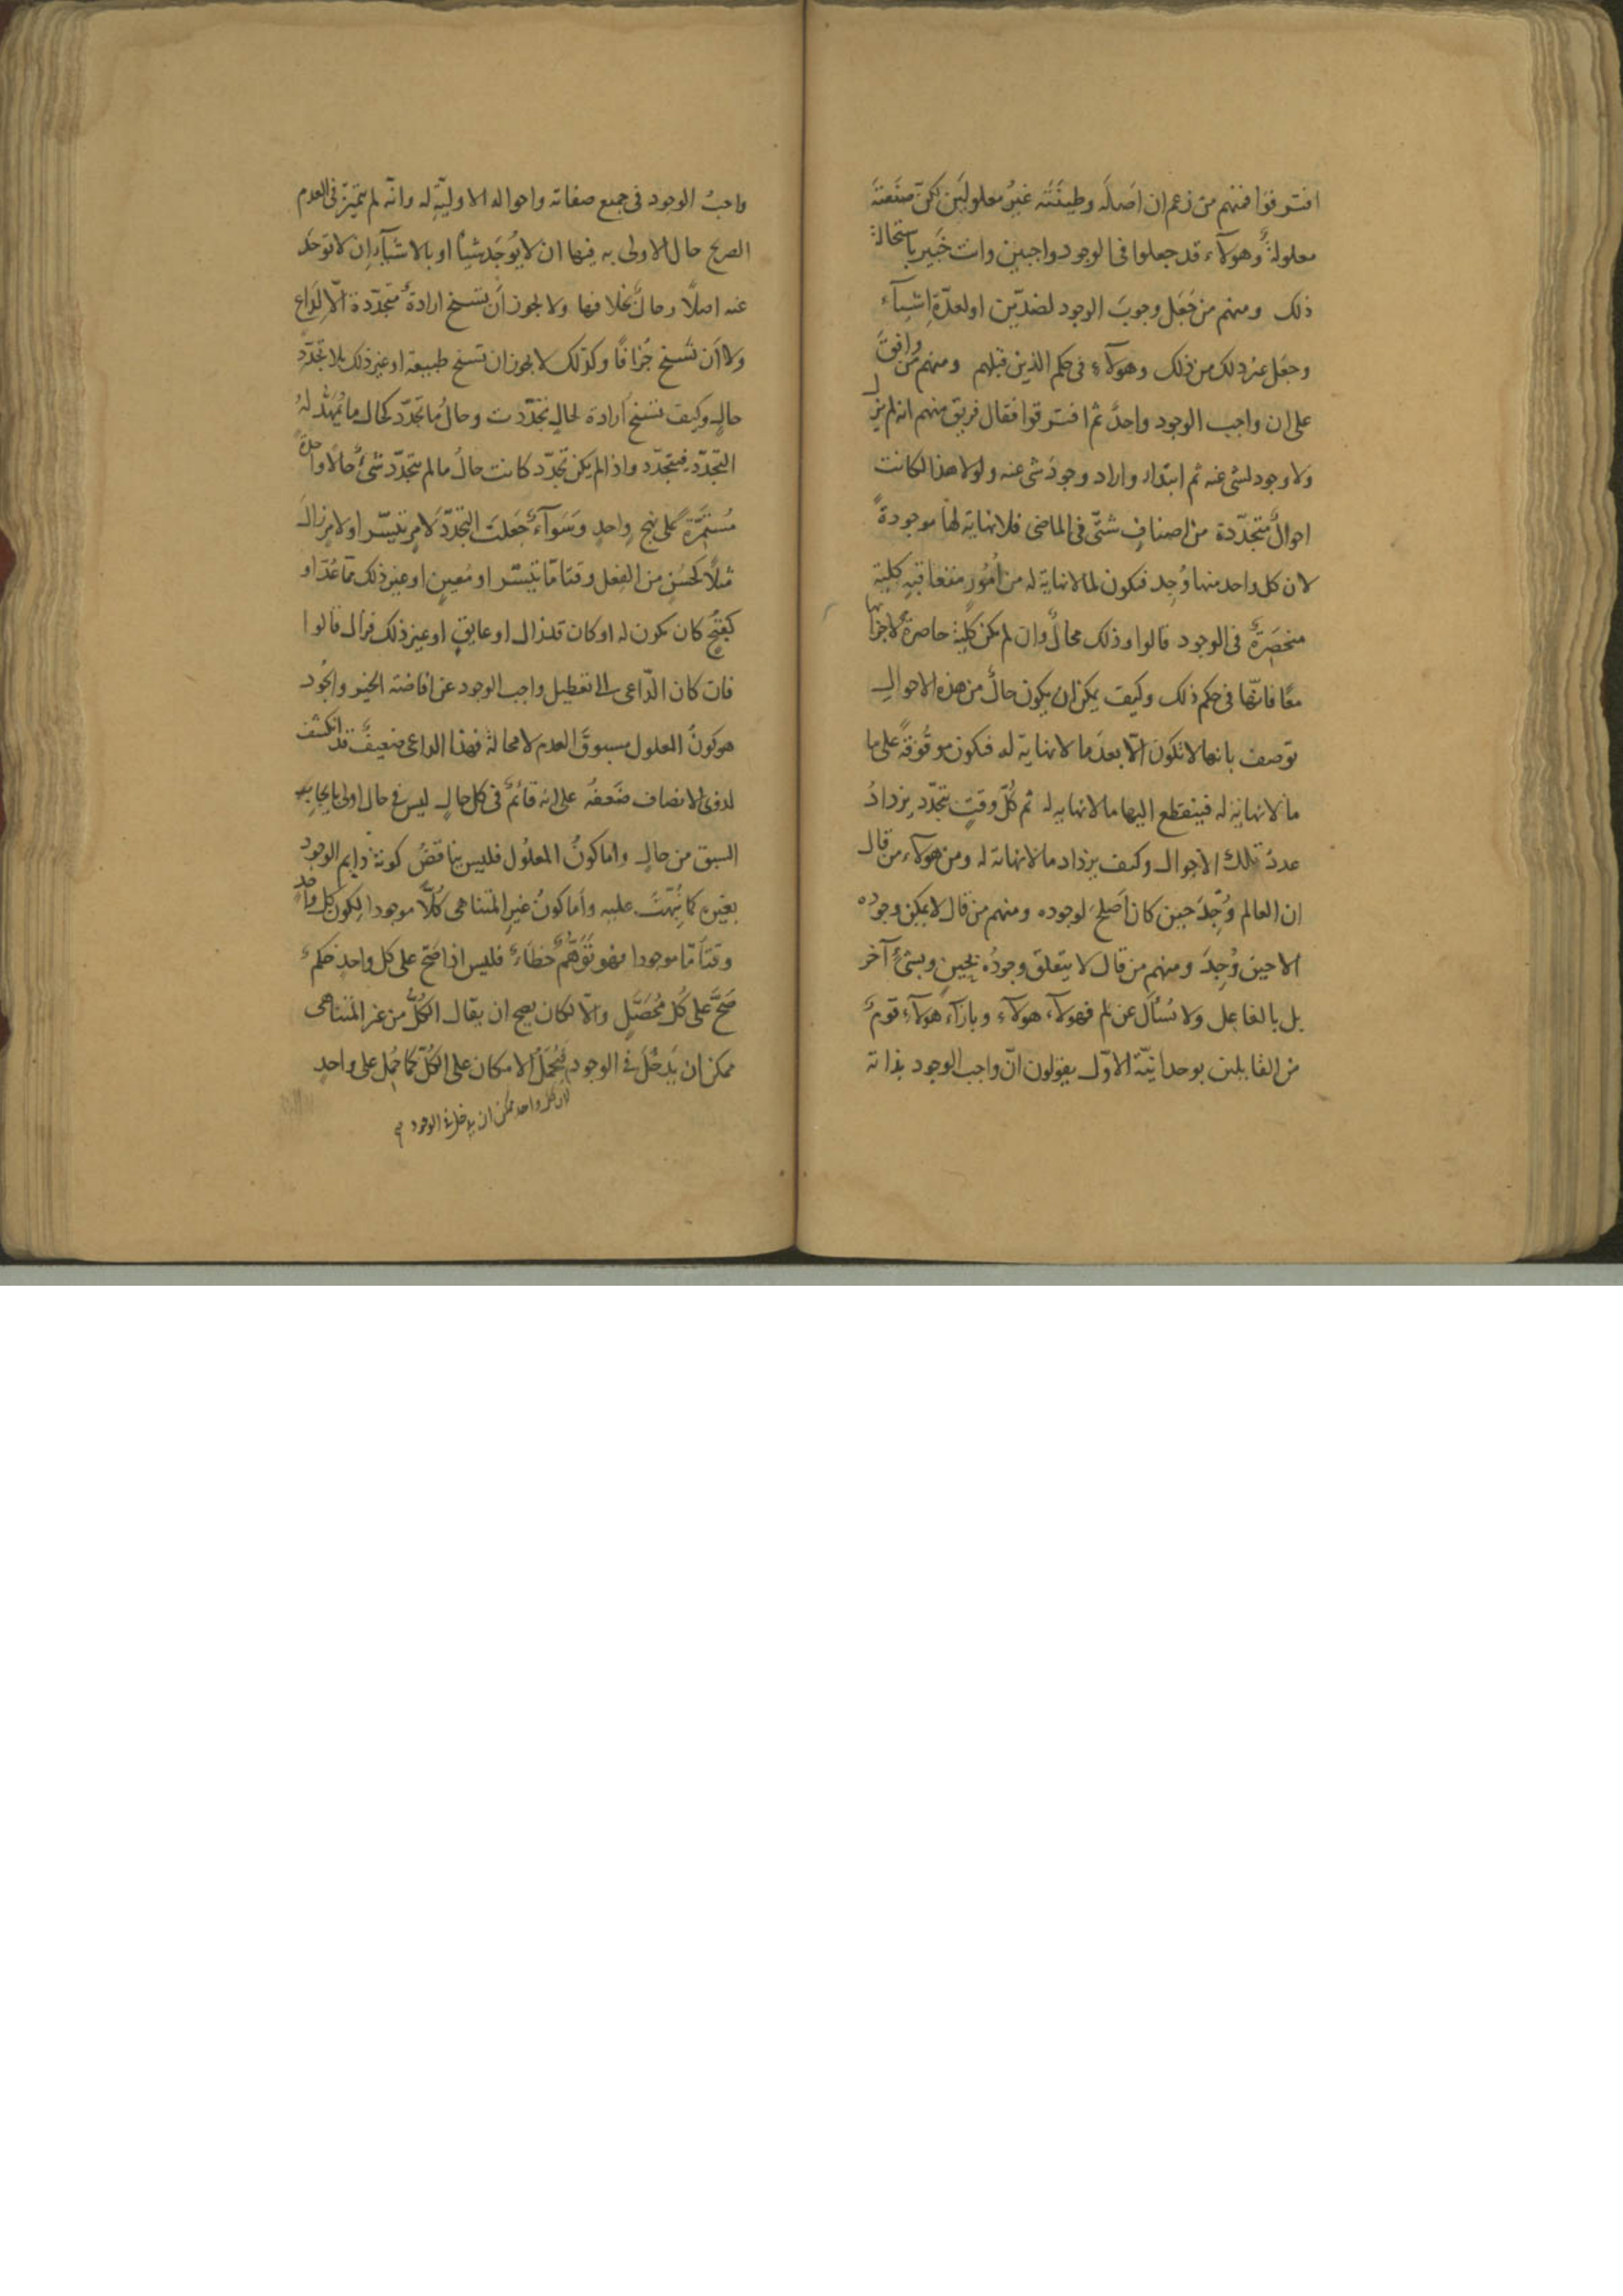 افترقوا فمنهم من زعم ان اَصلَه وطينَتَه غيرُ معلولَين لكنّ صنَعتَهَ
معلولةٌ وهولآء قد جعلوا فى الوجود واجبين وانت خَبير باستحالة
ذلك ومنهم من جَعَل وجوبَ الوجود لضدّين او لعدّة اِشيآء
وجعَل غير ذلك من ذلك وهولآء فى حكم الذين قبلهم ومنهم مَن وافقَ
على ان واجب الوجود واحدٌ ثم افترقوا فقال فريق منهم انه لم يزل
ولا وجود لشى عنه ثم ابتدا، واراد وجودَ شى عنه ولولا هذا لكانت
احوالٌ متجدّدة من اصنافٍ شتّى فى الماضى فلا نهاية لها موجودةً
لان كل واحد منها وُجِد فيكون لما لا نهاية له من اُمُورٍ متعاقبةٍ كلّيّة
منحَصِرةٌ فى الوجود قالوا وذلك محالٌ وان لم يكن كلّيّة حاصرةٌ لاجزائها
معًا فانّها فى حكم ذلك وكيف يمكن ان يكون حالٌ من هذه الاحوالِ
توصف بانها لا تكون الّا بعدَ ما لا نهاية له فيكون موقُوفةً على ما
ما لا نهاية له فينقطع اليها ما لا نهاية له ثم كُلّ وقتٍ يتجدّد يزدادُ
عددُ تلك الاحوال وكيف يزداد ما لا نهاية له ومن هولآء، من قال
ان العالم وُجِدَ حين كان اَصلَحَ لوجوده ومنهم من قال لا يمكن وجوده
الا حين وُجِدَ ومنهم من قال لا يتعلق وجودُه بحينٍ وبشئٍ آخر
بل بالفاعل ولا نُسأَل عن لم فهولآء، هولآء وبازآء هولآءِ قومٌ
من القايلين بوحدانيّة الاوّل يقولون انّ واجب الوجود بذاته
واجبُ الوجود فى جميع صفاته واحواله الاوليّةِ له وانّه لم يتميّز فى العدم
الصريح حال الاولى به فيها ان لا يُوجَد شيئا او بالاشيآءِ ان لا توجَد
عنه اصلًا وحالٌ بخلافها ولا يجوز اَن يَسنح ارادةٌ متجدّدة الّا لِدَاعٍ
ولا اَن تَسنح جُزافًا وكذلك لا يجوز ان تسنح طبيعة او غير ذلك بلا تجدّدِ
حالٍ وكيف تسنح ارادة لحالٍ تجدّدت وحالُ ما تجدّد كحال ما يُمهّد لهُ
التجدّد فيتجدّد واذا لم يكن تجدّد كانت حالُ ما لم يتجدّد شئٌ حالًا واحدةً
مُستَمِرّةً على نهجٍ واحدٍ وسَوآءٌ جَعلتَ التجدّدَ لامرٍ تيسّر او لامرٍ زالَ
مثلًا كحُسنٍ من الفعل وقتا مّا تيسّر او مُعينٍ او غير ذلك ممّا عُدّ او
كقبحٍ كان يكون له او كان قد زال او عايقٍ او غير ذلك فزال قالوا
فان كان الدّاعى الى تعطيل واجب الوجود عن افاضة الخير والجُود
هو كونُ المعلول مسبوقَ العدم لا محالة فهذا الداعى ضعيفٌ قد انكشف
لذوى الانصاف ضَعفُه على انه قائمٌ فى كل حالٍ ليس فى حال اولى بايجابِ
السبق من حالٍ واما كونُ المعلُول فليس يناقضُ كونَهُ دايم الوجود
بغيره كما نُبّهتَ عليه واَما كونُ غيرِ المتناهى كُلًّا موجودا لكون كل واحدٍ
وقتًا مّا موجودا فهو تَوَهُّمٌ خطَأٌ فليس اذا صَحّ على كل واحدٍ حكمٌ
صَحَّ على كُل مُحصَّلٍ والّا لكان يصح ان يقال الكُلُّ من غير المتناهى
ممكن ان يَدخُلَ فى الوجود فيُحمَلُ الامكان على الكُلّ كما حُمِل على واحدٍ
لان كل واحد ممكن ان يدخل فى الوجود